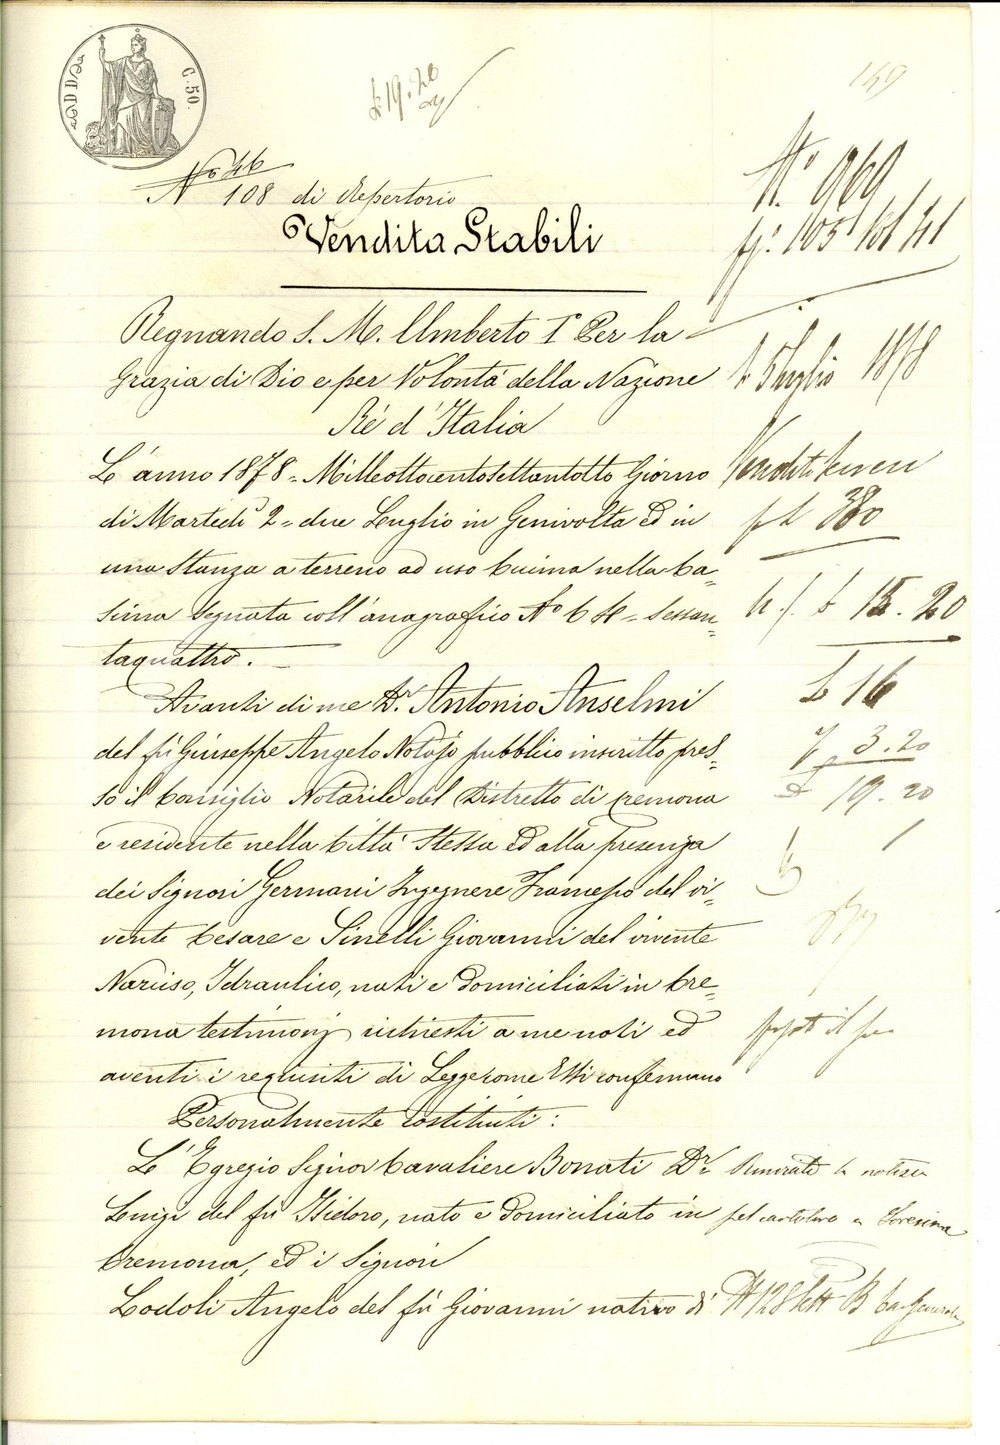 C. 50.
£ 19.20
149
N° 46
108 di Repertorio
Vendita Stabili
Regnando S. M. Umberto I° Per la
Grazia di Dio e per Volontà della Nazione
Ré d'Italia
L'anno 1878 = Milleottocentosettantotto Giorno
di Martedì 2 = due Luglio in Genivolta ed in
una Stanza a terreno ad uso Cucina nella Ca=
sina segnata coll'anagrafico N° 64 = Sessan=
taquattro.
Avanti di me Dr. Antonio Anselmi
del fù Giuseppe Angelo Notajo pubblico inscritto pres=
so il Consiglio Notarile del Distretto di Cremona
e residente nella Città stessa ed alla presenza
dei Signori Germani Ingegnere Francesco del vi=
vente Cesare e Sinelli Giovanni del vivente
Narciso, Idraulico, nati e domiciliati in Cre=
mona testimonj richiesti a me noti ed
aventi i requisiti di Legge come Essi confermano
Personalmente costituiti:
L'Egregio Signor Cavaliere Bonati Dr.
Luigi del fù Isidoro, nato e domiciliato in
Cremona, ed i Signori
Lodoli Angelo del fù Giovanni nativo di
N° 969
105 vol 41
5 Luglio 1878
Vendita
380
15.20
£ 16
3.20
19.20
il
la notizia
a Soresina
N 128